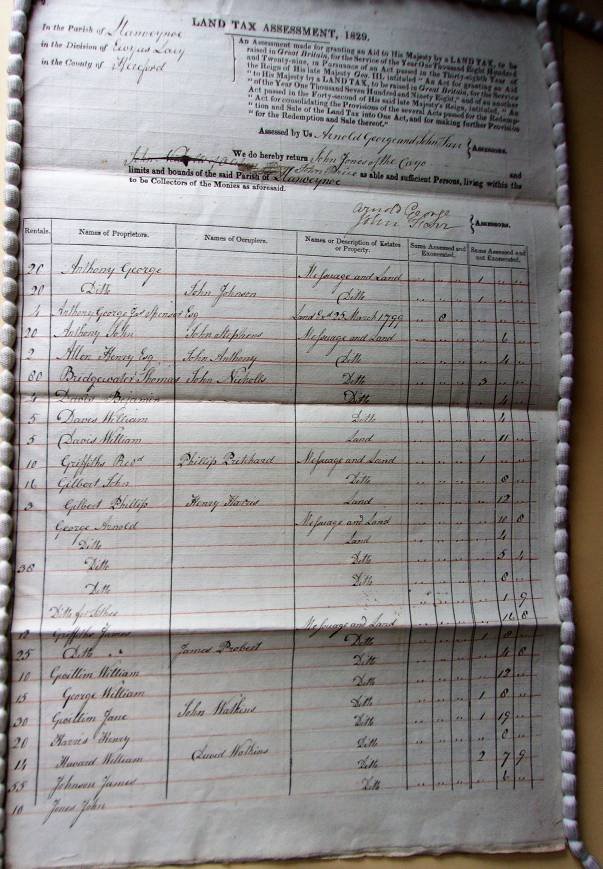 LAND TAX ASSESSMENT, 1829.
In the Parish of Llanveynoe
in the Division of Ewyas Lacy
in the County of Hereford
An Assessment made for granting an Aid to His Majesty by a LAND TAX, to be
raised in Great Britain, for the Service of the Year One Thousand Eight Hundred
and Twenty-nine, in Pursuance of an Act passed in the Thirty-eighth Year of
the Reign of His late Majesty Geo. III. intituled "An Act for granting an Aid
"to His Majesty by a LAND TAX, to be raised in Great Britain, for the Service
"of the Year One Thousand Seven Hundred and Ninety Eight," and of an other
Act passed in the Forty-second of His said late Majesty's Reign, intituled, "An
"Act for consolidating the Provisions of the several Acts passed for the Redemp-
"tion and Sale of the Land Tax into One Act, and for making further Provision
"for the Redemption and Sale thereof."
Assessed by Us Arnold George and John Farr Assessors.
We do hereby return John Jones of the Cayo and
John Price as able and sufficient Persons, living within the
limits and bounds of the said Parish of Llanveynoe
to be Collectors of the Monies as aforesaid.
Arnold George
John Farr
Assessors.
Rentals. Names of Proprietors. Names of Occupiers. Names or Description of Estates or Property. Sums Assessed and Exonerated. Sums Assessed and not Exonerated.
20 Anthony George Messuage and Land 1 " "
20 Ditto John Johnson Ditto 1 " "
4 Anthony George Esq Land 25 March 1799 " 8
20 Anthony John John Stephens Messuage and Land " 6 "
2 Allen Henry Esq John Anthony Ditto " 4 "
60 Bridgewater Thomas John Nicholls Ditto 3 " "
4 David Benjamin Ditto " 4 "
5 Davis William Ditto " 4 "
5 Davis William Land " 11 "
10 Griffiths Phillip Pritchard Messuage and Land 1 " "
16 Gilbert John Ditto " 8 "
3 Gilbert Phillip Henry Harris Land " 12 "
George Arnold Messuage and Land " 10 8
Ditto Land " 4 "
38 Ditto Ditto " 5 4
Ditto Ditto " 8 "
Ditto for Tithes " 1 9
12 Griffiths James Messuage and Land " 16 8
25 Ditto James Probert Ditto 1 8 "
10 Gwillim William Ditto " 4 8
15 George William Ditto " 12 "
30 Gwillim Jane John Watkins Ditto 1 8 "
20 Harris Henry Ditto 1 19 "
14 Havard William David Watkins Ditto " 8 "
55 Johnson James Ditto 2 7 9
10 Jones John Ditto " 6 "